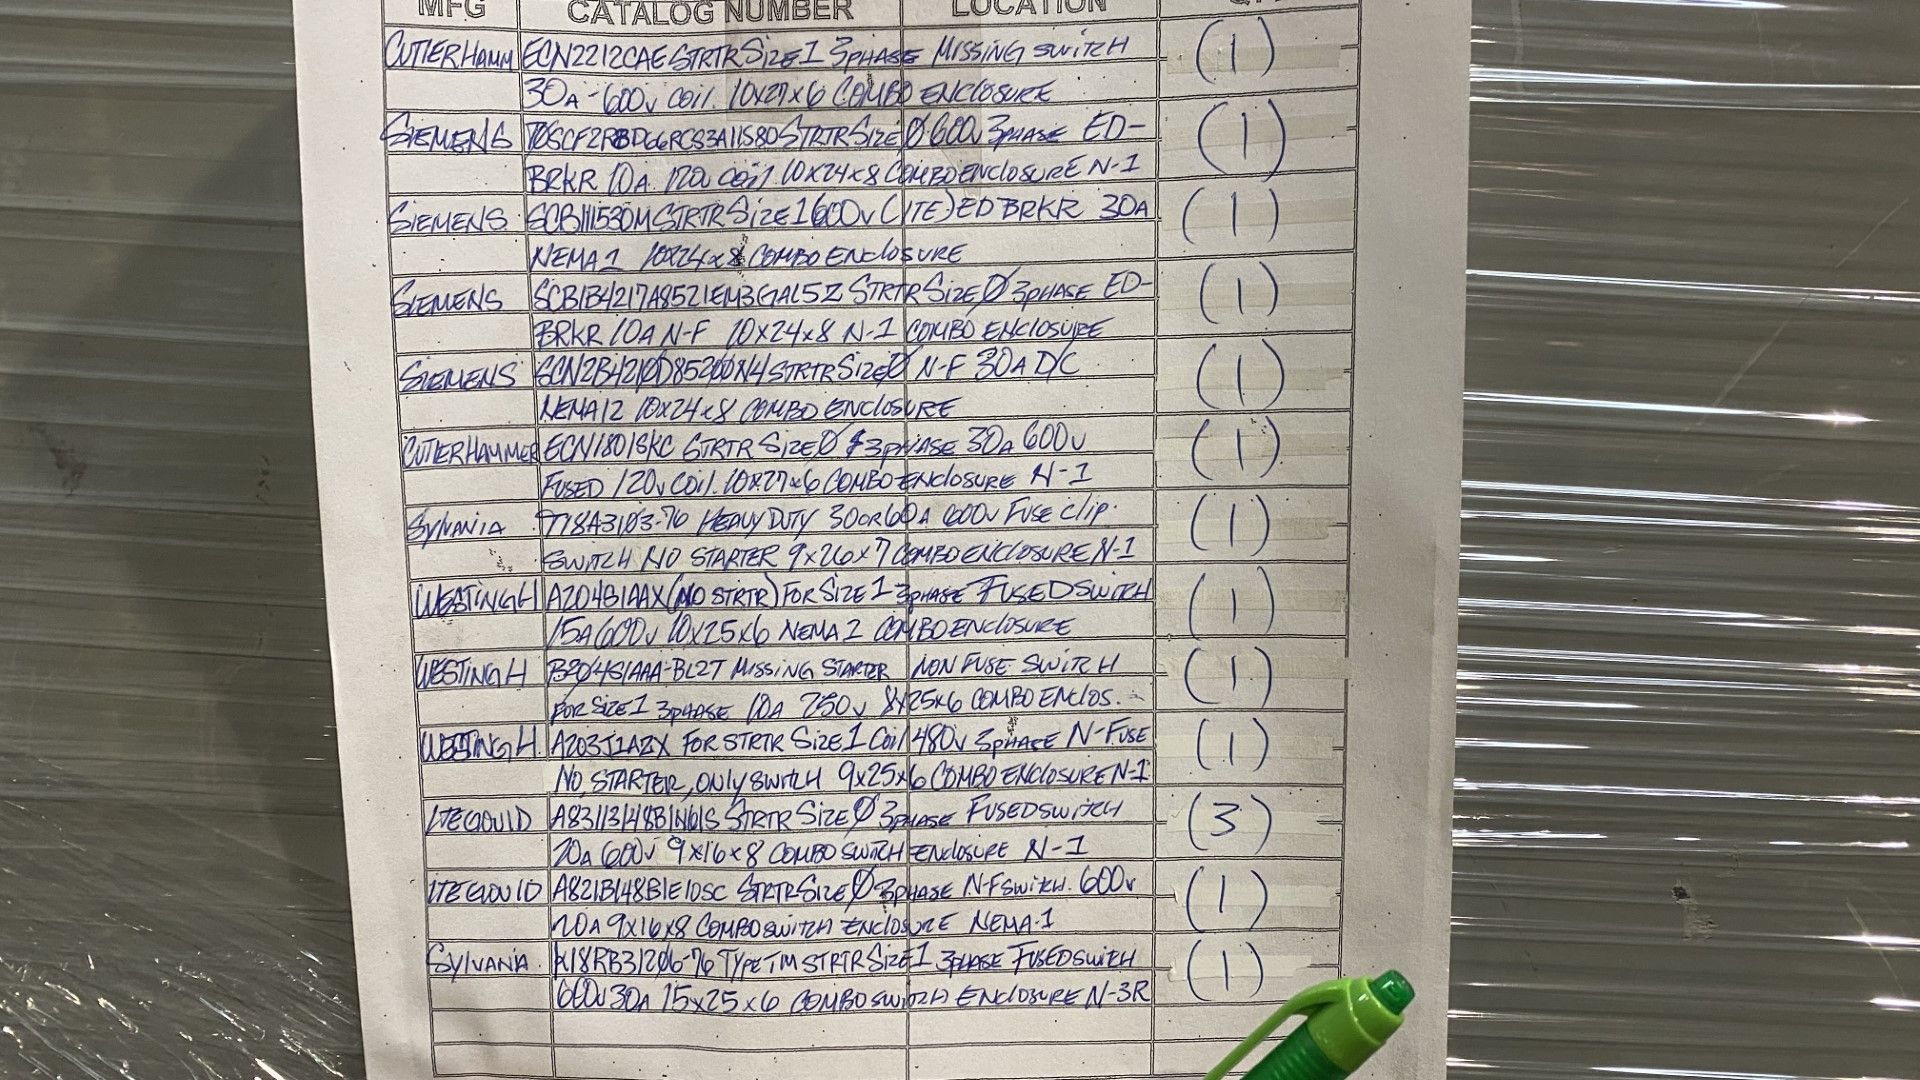 MFG CATALOG NUMBER LOCATION
CUTLERHAMM ECN2212CAE STRTR SIZE 1 3PHASE MISSING SWITCH (1)
30A-600V COIL 10X27X6 COMBO ENCLOSURE
SIEMENS STRTR SIZE Ø 600V 3PHASE ED- (1)
BRKR 10A 120V COIL 10X24X8 COMBO ENCLOSURE N-1
SIEMENS STRTR SIZE 1 600V (ITE) ED BRKR 30A (1)
NEMA 1 10X24X8 COMBO ENCLOSURE
SIEMENS STRTR SIZE Ø 3PHASE ED- (1)
BRKR 10A N-F 10X24X8 N-1 COMBO ENCLOSURE
SIEMENS STRTR SIZE Ø N-F 30A D/C (1)
NEMA 12 10X24X8 COMBO ENCLOSURE
CUTLERHAMMER ECN1801SKC STRTR SIZE Ø 3PHASE 30A 600V (1)
FUSED 120V COIL 10X27X6 COMBO ENCLOSURE N-1
SYLVANIA HEAVY DUTY 30 OR 60A 600V FUSE CLIP (1)
SWITCH NO STARTER 9X26X7 COMBO ENCLOSURE N-1
WESTINGH A204S1AAX (NO STRTR) FOR SIZE 1 3PHASE FUSED SWITCH (1)
15A 600V 10X25X6 NEMA COMBO ENCLOSURE
WESTINGH MISSING STARTER NON FUSE SWITCH (1)
FOR SIZE 1 3PHASE 10A 250V 8X25X6 COMBO ENCLOS.
WESTINGH FOR STRTR SIZE 1 COIL 480V 3PHASE N-FUSE (1)
NO STARTER, ONLY SWITCH 9X25X6 COMBO ENCLOSURE N-1
ITE GOULD STRTR SIZE Ø 3PHASE FUSED SWITCH (3)
20A 600V 9X16X8 COMBO SWITCH ENCLOSURE N-1
ITE GOULD STRTR SIZE Ø 3PHASE N-F SWITCH. 600V (1)
20A 9X16X8 COMBO SWITCH ENCLOSURE NEMA-1
SYLVANIA TYPE TM STRTR SIZE 1 3PHASE FUSED SWITCH (1)
600V 30A 15X25X6 COMBO SWITCH ENCLOSURE N-3R